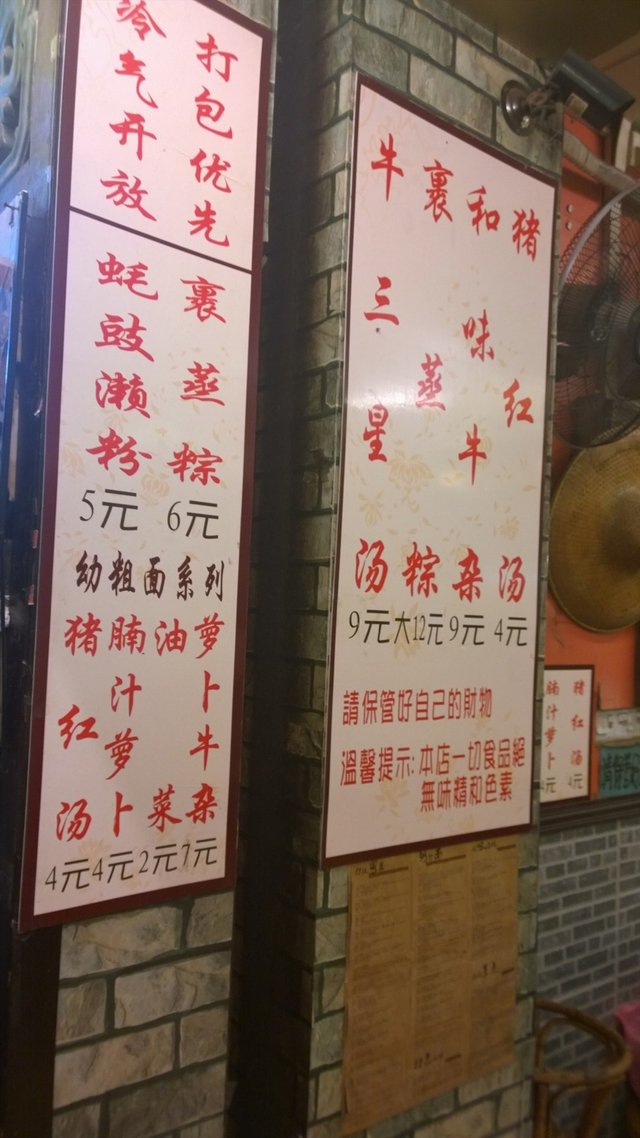 打包优先
冷气开放
裹蒸粽
6元
蚝豉濑粉
5元
幼粗面系列
萝卜牛杂
7元
油菜
2元
腩汁萝卜
4元
猪红汤
4元
猪红汤
4元
和味牛杂
9元
裹蒸粽
大12元
牛三星汤
9元
請保管好自己的財物
溫馨提示:本店一切食品絕
無味精和色素
猪红汤
4元
腩汁萝卜
元